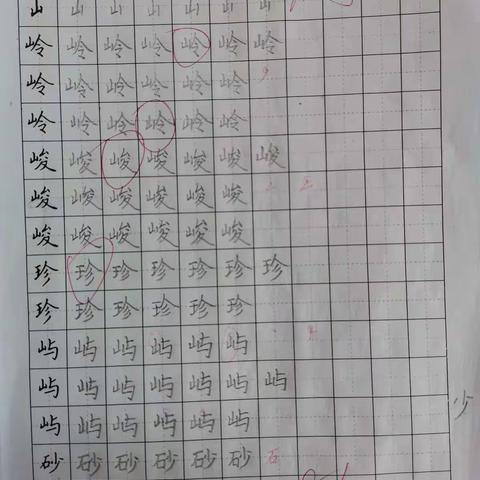 山 山 山 山 山 山 山
岭 岭 岭 岭 岭 岭 岭
岭 岭 岭 岭 岭 岭
岭 岭 岭 岭 岭 岭
峻 峻 峻 峻 峻 峻 峻
峻 峻 峻 峻 峻 峻
峻 峻 峻 峻 峻 峻
珍 珍 珍 珍 珍 珍 珍
珍 珍 珍 珍 珍 珍
屿 屿 屿 屿 屿 屿
屿 屿 屿 屿 屿 屿 屿
屿 屿 屿 屿 屿 屿
少
砂 砂 砂 砂 砂 砂 石